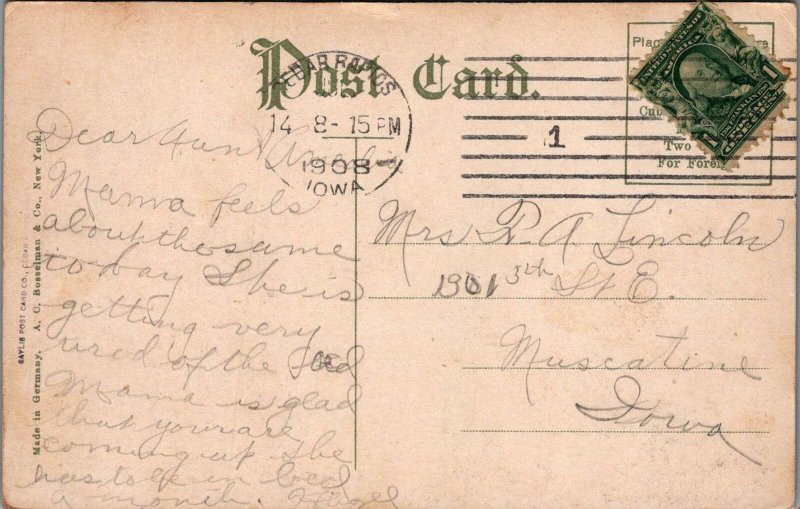 Post Card.
CEDAR RAPIDS
14 8-15 PM
1908
IOWA
1
Two
For Forei
1
Dear Aunt
Mama feels
about the same
to day She is
getting very
tired of the bed
Mama is glad
that you are
coming up She
has to be in bed
a month. Hazel
Mrs. P. A Lincoln
1901 3th
St E.
Muscatine
Iowa
Made in Germany. A. C. Bosselman & Co., New York.
BAYLIS POST CARD CO., CEDAR